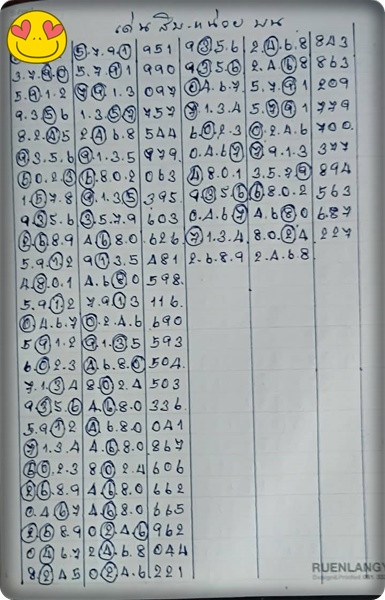 เด่น สิบ-หน่วย บน
5.7.9.1 951 9.3.5.6 2.4.6.8 843
3.7.9.0 5.7.9.1 990 9.3.5.6 2.4.6.8 863
5.9.1.2 7.9.1.3 097 0.4.6.7 5.7.9.1 209
9.3.5.6 1.3.5.7 757 7.1.3.4 5.7.9.1 779
8.2.4.5 2.4.6.8 544 6.0.2.3 0.2.4.6 700
9.3.5.6 9.1.3.5 979 0.4.6.7 7.9.1.3 377
6.0.2.3 6.8.0.2 063 4.8.0.1 3.5.7.9 894
1.5.7.8 9.1.3.5 395 9.3.5.6 6.8.0.2 563
9.3.5.6 3.5.7.9 603 0.4.6.7 4.6.8.0 687
2.6.8.9 4.6.8.0 626 7.1.3.4 8.0.2.4 227
5.9.1.2 9.1.3.5 481 2.6.8.9 2.4.6.8
4.8.0.1 4.6.8.0 598
5.9.1.2 7.9.1.3 116
0.4.6.7 0.2.4.6 690
5.9.1.2 9.1.3.5 593
6.0.2.3 4.6.8.0 504
7.1.3.4 8.0.2.4 503
9.3.5.6 4.6.8.0 336
5.9.1.2 4.6.8.0 041
7.1.3.4 4.6.8.0 867
6.0.2.3 8.0.2.4 606
2.6.8.9 4.6.8.0 662
0.4.6.7 4.6.8.0 665
2.6.8.9 0.2.4.6 962
0.4.6.7 2.4.6.8 044
8.2.4.5 0.2.4.6 221